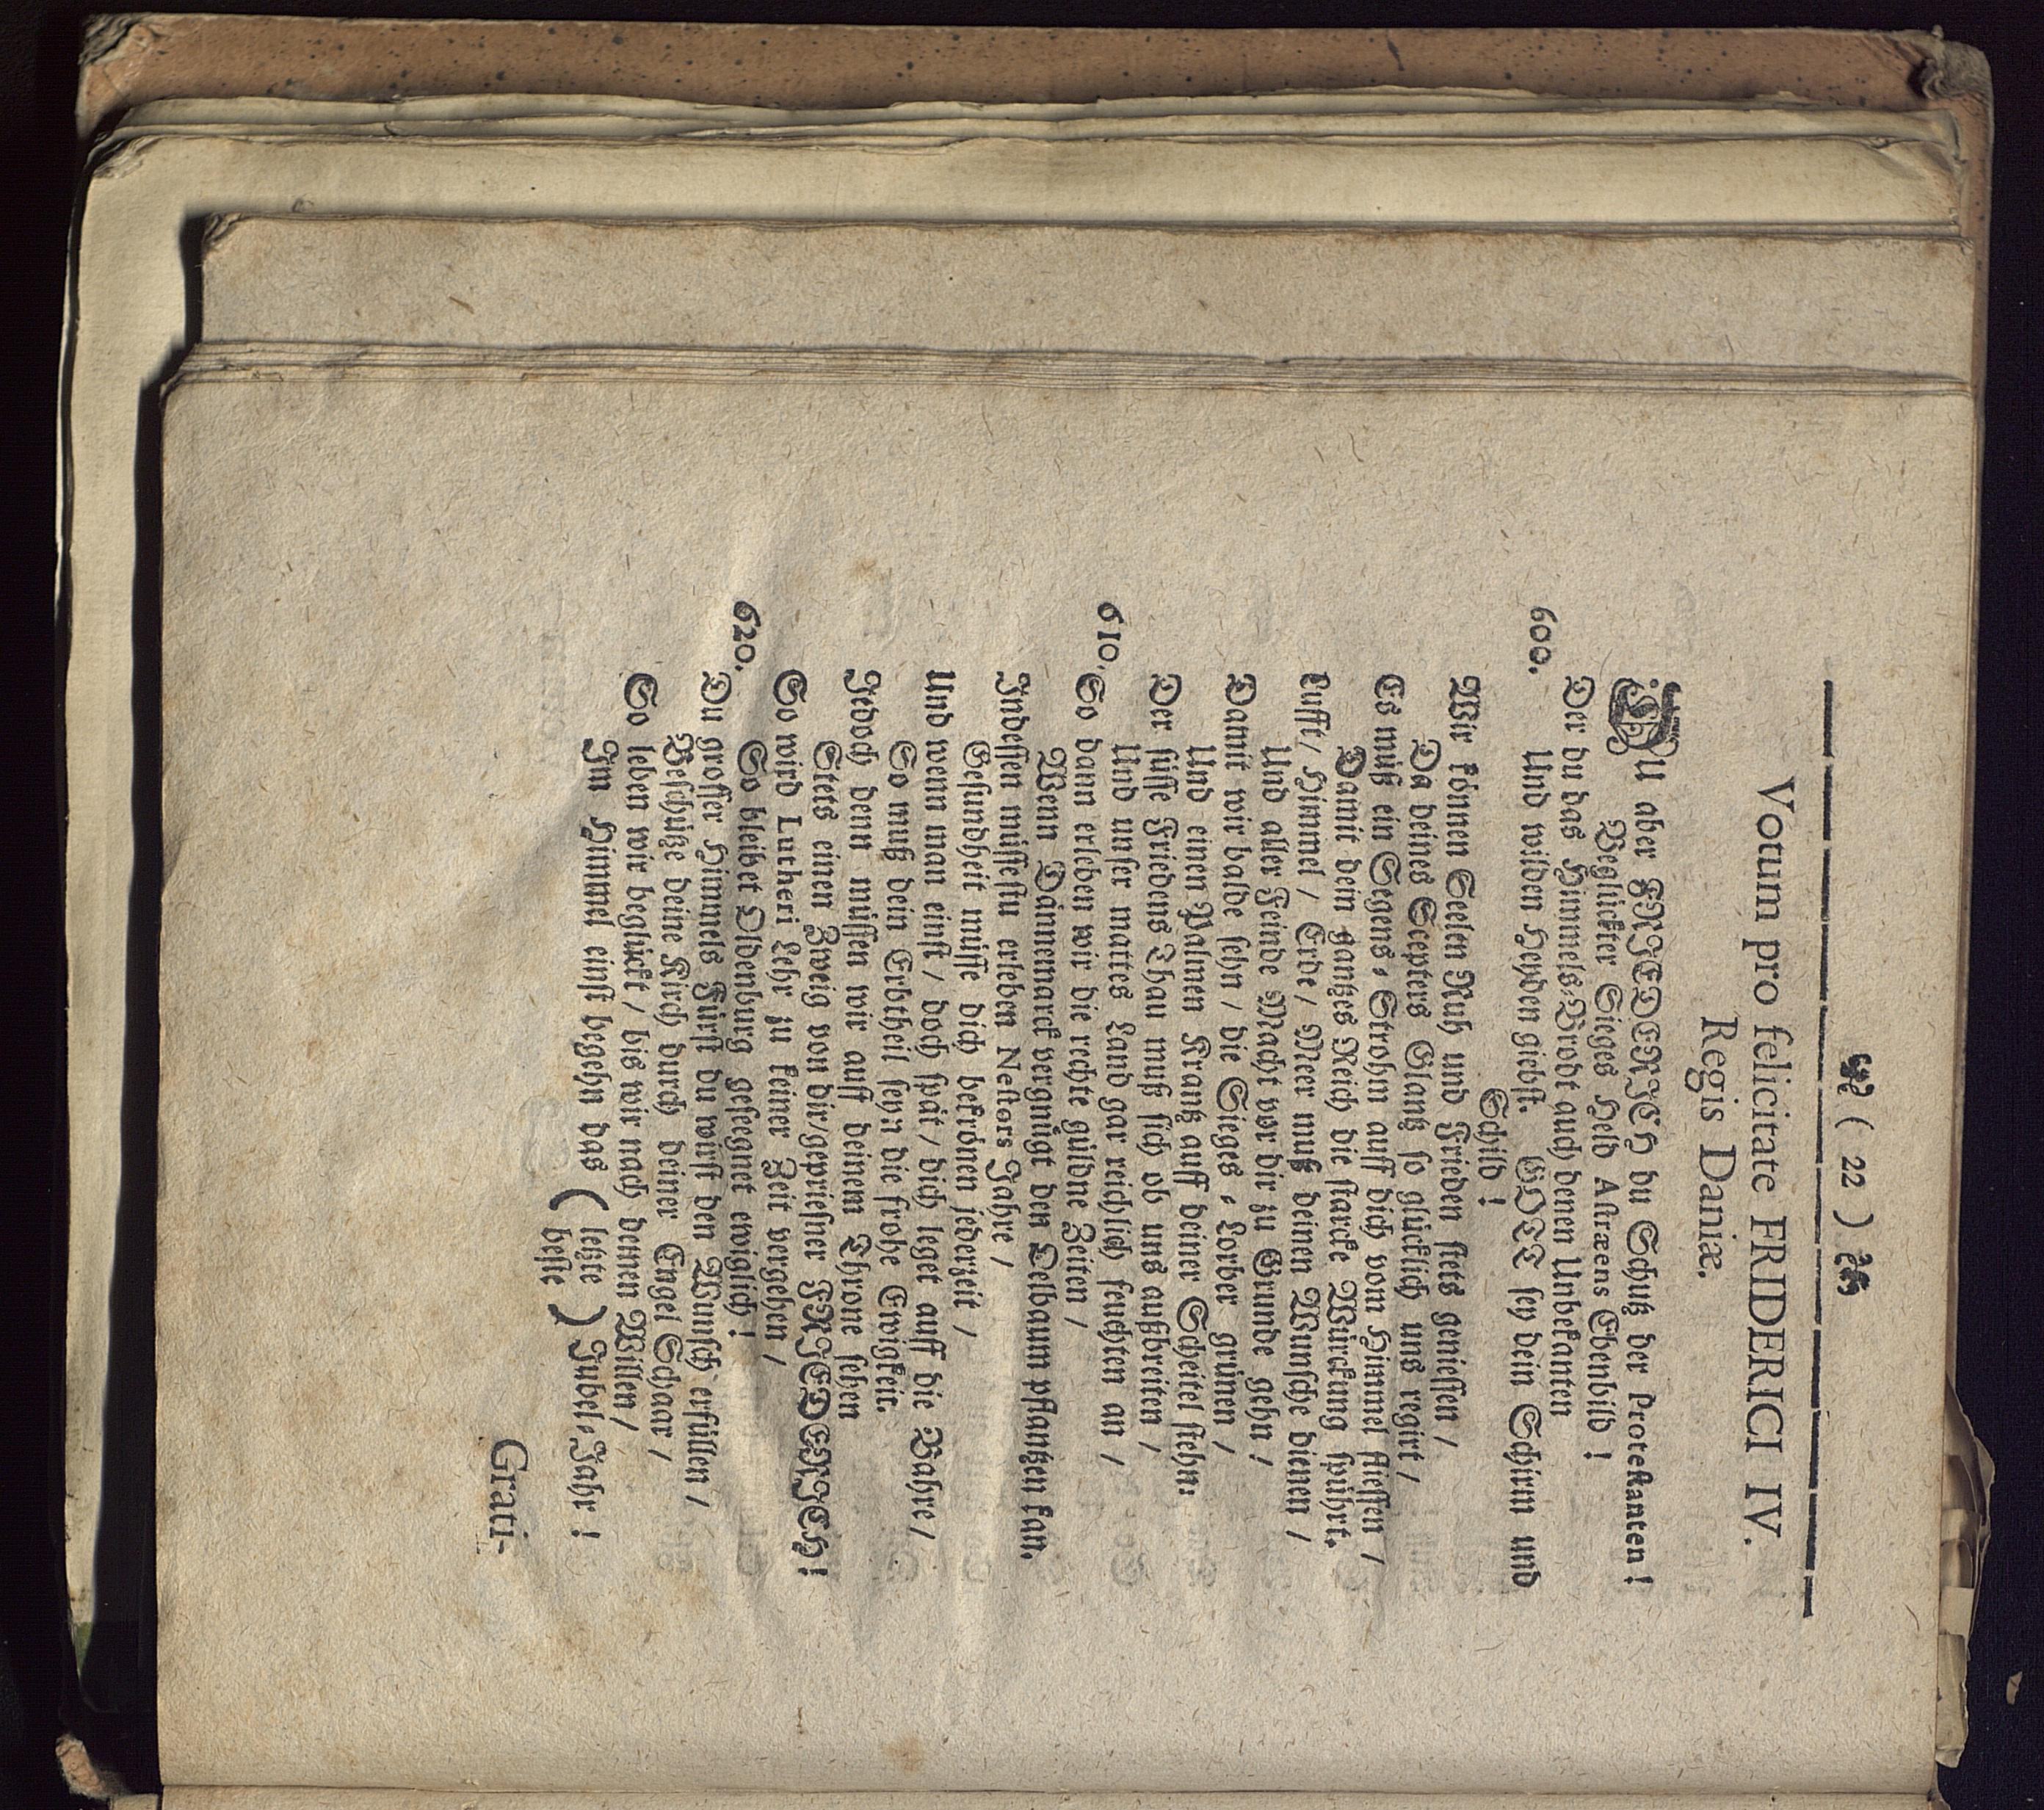 ( 22 )
Votum pro felicitate FRIDERICI IV.
Regis Daniæ.
DU aber FRJEDERJCH du Schutz der Protestanten !
Beglückter Sieges Held Astræens Ebenbild !
Der du das Himmels-Brodt auch denen Unbekanten
600. Und wilden Heyden giebst. GOTT sey dein Schirm und
Schild !
Wir können Seelen Ruh und Frieden stets geniessen /
Da deines Scepters Glantz so glücklich uns regirt /
Es muß ein Segens-Strohm auff dich vom Himmel fliessen /
Damit dein gantzes Reich die starcke Würckung spührt.
Lufft / Himmel / Erde / Meer muß deinen Wunsche dienen /
Und aller Feinde Macht vor dir zu Grunde gehn !
Damit wir balde sehn / die Sieges-Lorber grünen /
Und einen Palmen Krantz auff deiner Scheitel stehn:
Der süsse Friedens Thau muß sich ob uns außbreiten /
Und unser mattes Land gar reichlich feuchten an /
610. So dann erleben wir die rechte güldne Zeiten /
Wenn Dännemarck vergnügt den Oelbaum pflantzen kan.
Jndessen müssestu erleben Nestors Jahre /
Gesundheit müsse dich bekrönen jederzeit /
Und wenn man einst / doch spät / dich leget auff die Bahre /
So muß dein Erbtheil seyn die frohe Ewigkeit.
Jedoch denn müssen wir auff deinem Throne sehen
Stets einen Zweig von dir / gepriesner FRJEDERJCH !
So wird Lutheri Lehr zu keiner Zeit vergehen /
So bleibet Oldenburg geseegnet ewiglich !
620. Du grosser Himmels Fürst du wirst den Wunsch erfüllen /
Beschütze deine Kirch durch deiner Engel Schaar /
So leben wir beglückt / bis wir nach denen Willen /
Jm Himmel einst begehn das ( letzte ) Jubel-Jahr !
beste
Grati-